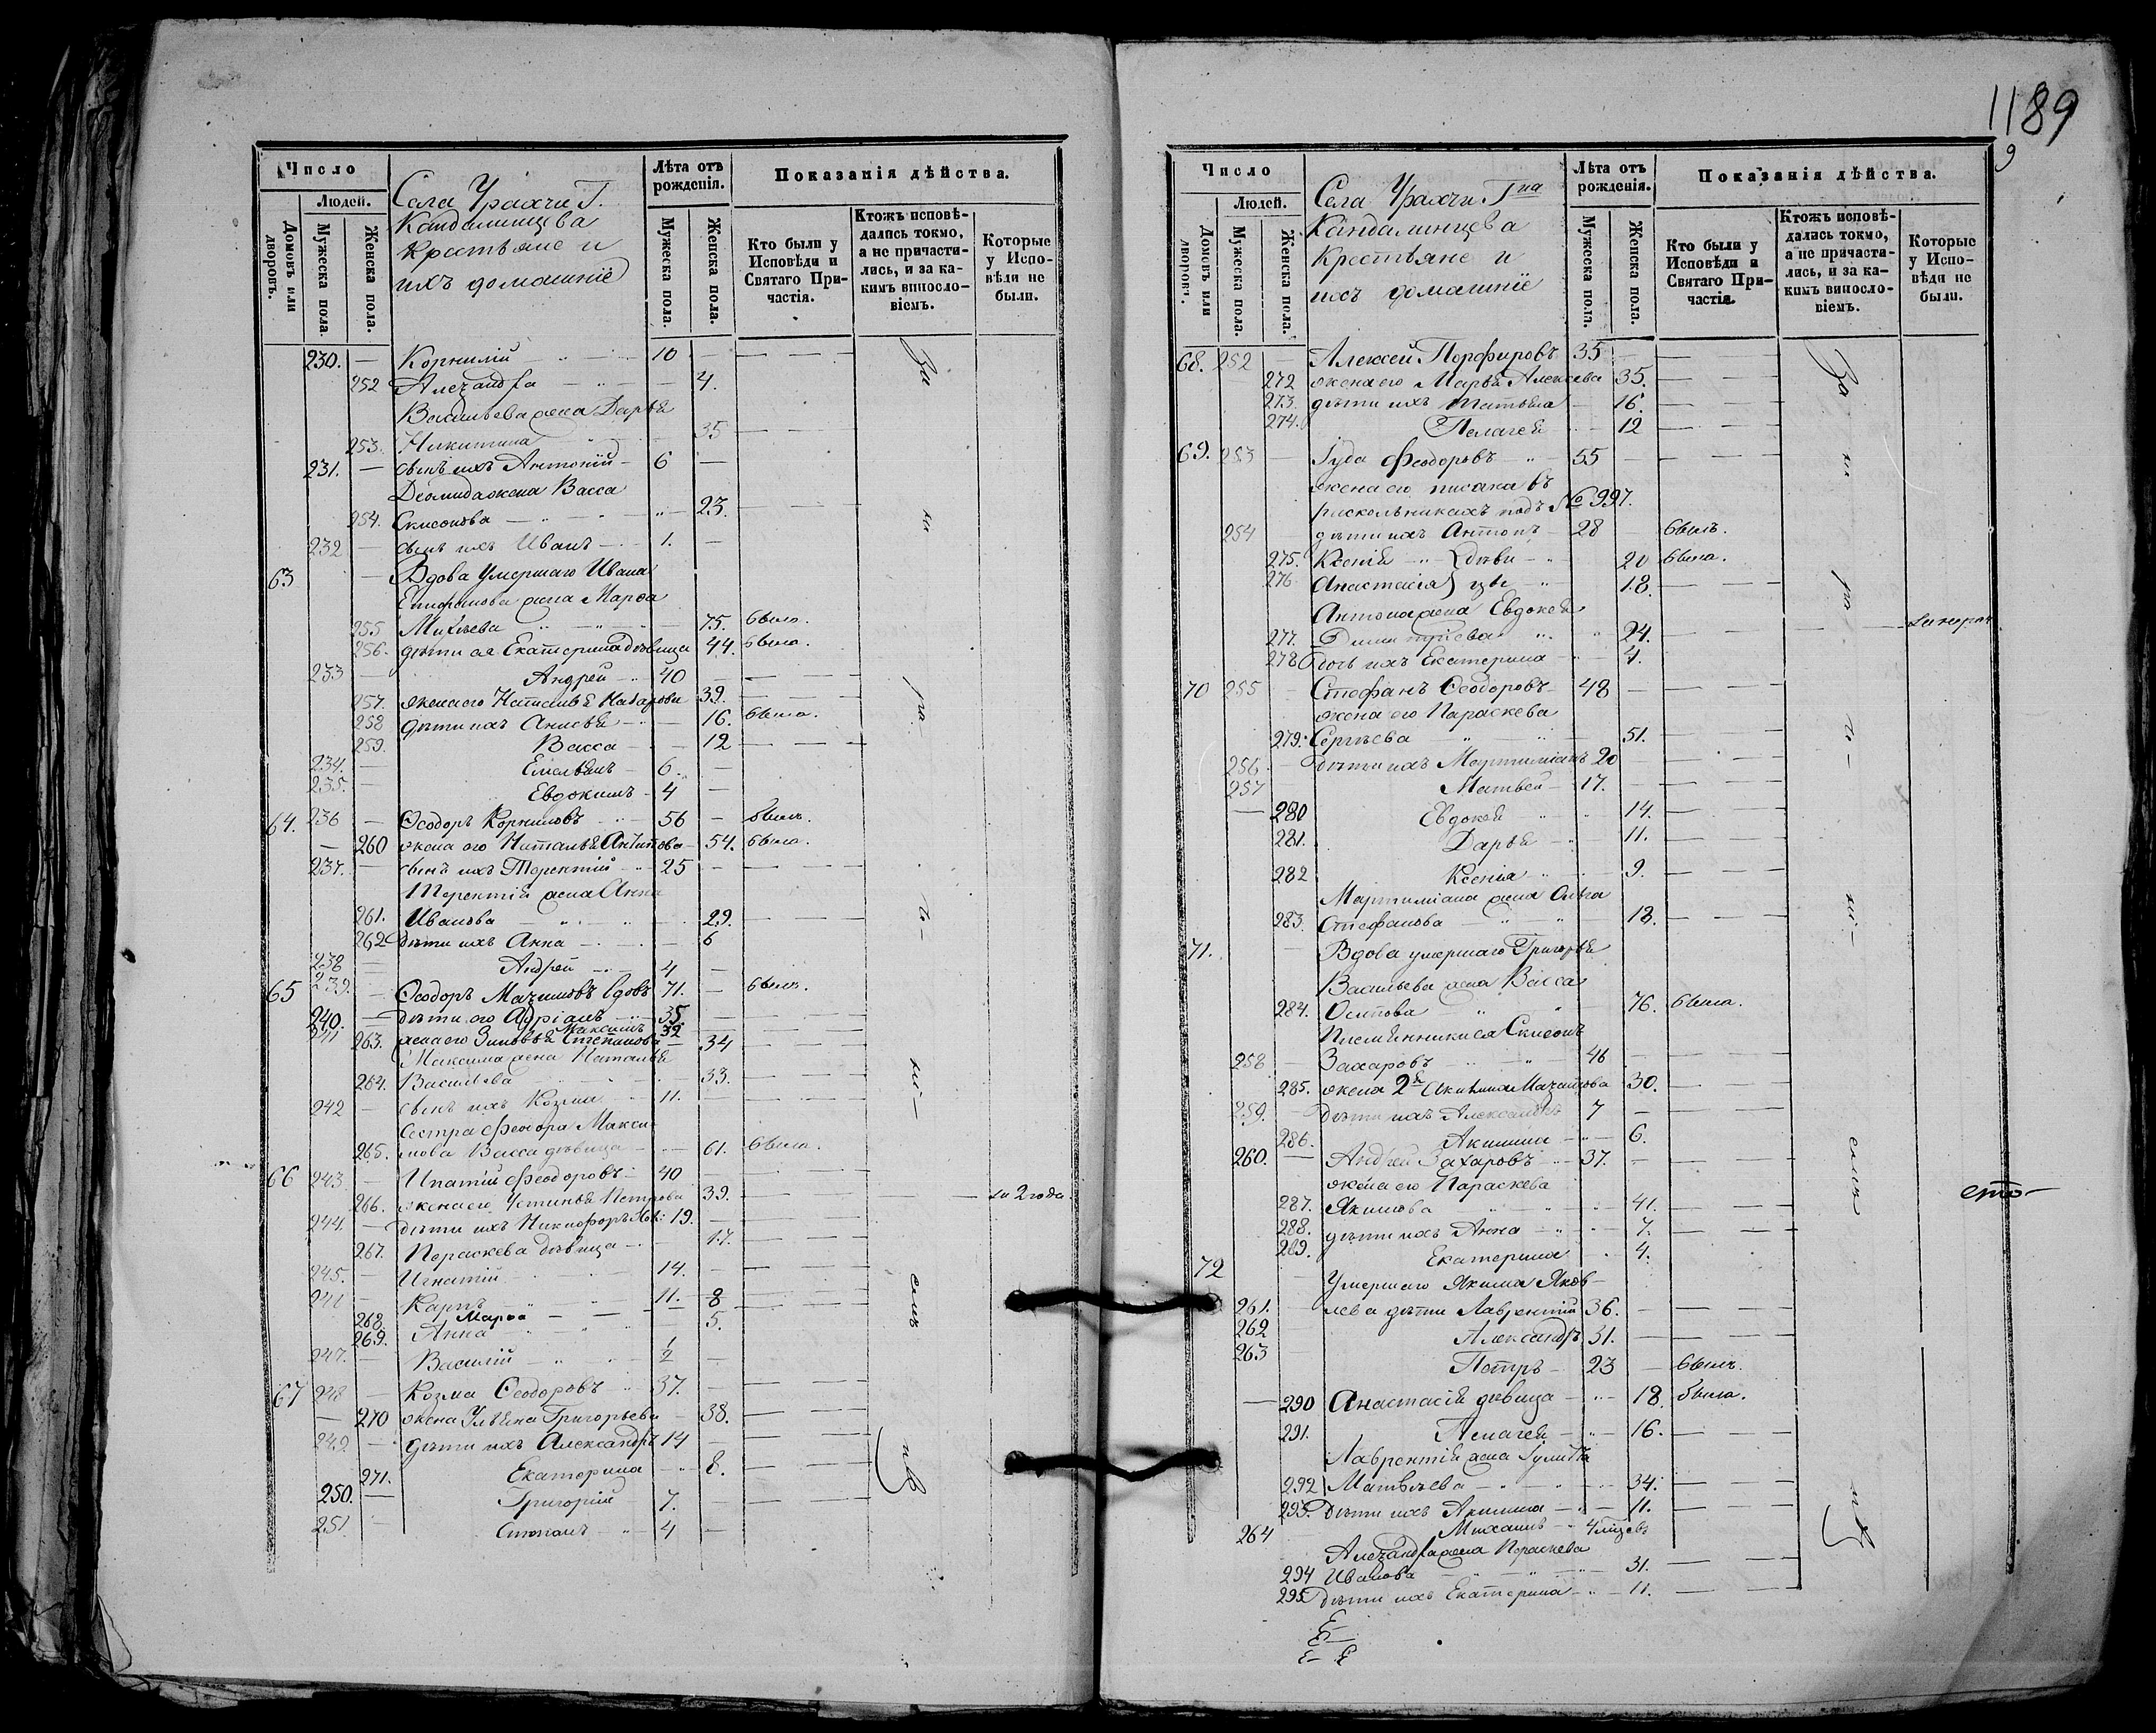 Число
Людей.
Домовъ или дворовъ.
Мужеска пола.
Женска пола.
Села Урахчи Г.
Кандалинцева
Крестьяне и
ихъ домашніе
Лѣта отъ рожденія.
Мужеска пола.
Женска пола.
Показанія дѣйства.
Кто были у Исповѣди и Святаго При-частія.
Ктожъ исповѣ-дались токмо, а не причасти-лись, и за ка-кимъ винословіемъ.
Которые у Испо-вѣди не были.
230. — Корнилій — 10 —
252 Алеѯандра — 4.
Васильева жена Дарья
253. Никитина 35
231. — сынъ ихъ Антоній — 6 —
Диомида жена Васса
254. Симеонова — 23.
232 — сынъ ихъ Иванъ — 1. —
63 — Вдова умершаго Ивана
Епифанова жена Марѳа
255 Михѣева 75. была.
256. дѣти ея Екатерина дѣвица 44. была.
233 — Андрей — 40
257. жена его Наталья Назарова 39.
258 дѣти ихъ Анисья — 16. была.
259. Васса — 12
234. — Емельянъ — 6. —
235. — Евдокимъ — 4 —
64. 236 — Ѳеодоръ Корниловъ 56 — былъ.
— 260 жена его Наталья Антипова 54. была.
237. сынъ ихъ Терентій — 25 —
Терентія жена Анна
261. Иванова 29.
262 дѣти ихъ Анна — 6
238 — Андрей — 4 —
65 239. — Ѳеодоръ Маѯимовъ вдовъ 71. — былъ.
240. — дѣти его Адріанъ — 35. —
241 Максимъ 32
263. жена его Зиновья Степанова — 34
Максима жена Наталья
264. Васильева 33.
242 — сынъ ихъ Козма 11. —
Сестра Ѳеодора Макси-
265. мова Васса дѣвица — 61. была.
66 243. — Ипатій Ѳеодоровъ 40 —
266. жена его Устинья Петрова 39. — 2 года.
244. — дѣти ихъ Никифоръ 19. —
267. Параскева дѣвица — 17.
245. — Игнатій 14. —
246 — Карпъ 11. 8
268. Марѳа — —
269. Анна 5.
247. — Василій 1/2 —
67 248 — Козма Ѳеодоровъ 37. —
— 270 жена Ульяна Григорьева 38.
249 — дѣти ихъ Александръ 14 —
271. Екатерина 8.
250. — Григорій 7. —
251 — Степанъ 4 —
За
ра
1189
9
Число
Людей.
Домовъ или дворовъ.
Мужеска пола.
Женска пола.
Села Урахчи Гна
Кандалинцева
Крестьяне и
ихъ домашніе
Лѣта отъ рожденія.
Мужеска пола.
Женска пола.
Показанія дѣйства.
Кто были у Исповѣди и Святаго При-частія.
Ктожъ исповѣ-дались токмо, а не причасти-лись, и за ка-кимъ винословіемъ.
Которые у Испо-вѣди не были.
68. 252 — Алексей Порфировъ 35 —
272 жена его Марья Алексева 35.
273. дѣти ихъ Татьяна — 16.
274. Пелагея — 12
69. 253 — Іуда Ѳеодоровъ 55 —
жена его писана въ
раскольникахъ подъ № 997.
254 — дѣти ихъ Антонъ — 28 былъ.
275. Ксенія } дѣви- 20 была.
276 Анастасія } цы 18.
Антона жена Евдокея
277. Димитріева 24.
278 дочь ихъ Екатерина — 4.
70 255 — Стефанъ Ѳеодоровъ 48 —
жена его Параскева
279. Сергѣева 51.
256 — дѣти ихъ Мартиміанъ 20
257 Матвей — 17.
— 280 Евдокея 14.
281. Дарья — 11.
282 Ксенія 9.
Мартиміана жена Ольга
283. Стефанова 18.
71. — Вдова умершаго Григорья
Васильева жена Васса
284. Осипова 76. была.
Племянники ея Симеонъ
258 — Захаровъ 46 —
285. жена 2я Акилина Маѯимова 30.
259. — дѣти ихъ Александръ 7 —
286. Акилина 6.
260. — Андрей Захаровъ 37. —
жена его Параскева
287. Якимова 41.
288. дѣти ихъ Анна — 7.
289. Екатерина 4.
72 — Умершаго Якима Яков-
261. — лева дѣти Лаврентій 36. —
262 Александръ 31. —
263 Петръ — 23 — былъ.
— 290 Анастасія дѣвица — 18. была.
291. Пелагея — 16.
Лаврентія жена Іулита
292 Матвѣева — 34.
293. дѣти ихъ Акилина — 11.
264 Михаилъ 4 мѣсяцевъ
Алеѯандра жена Параскева
294 Иванова 31.
295 дѣти ихъ Екатерина — 11.
За